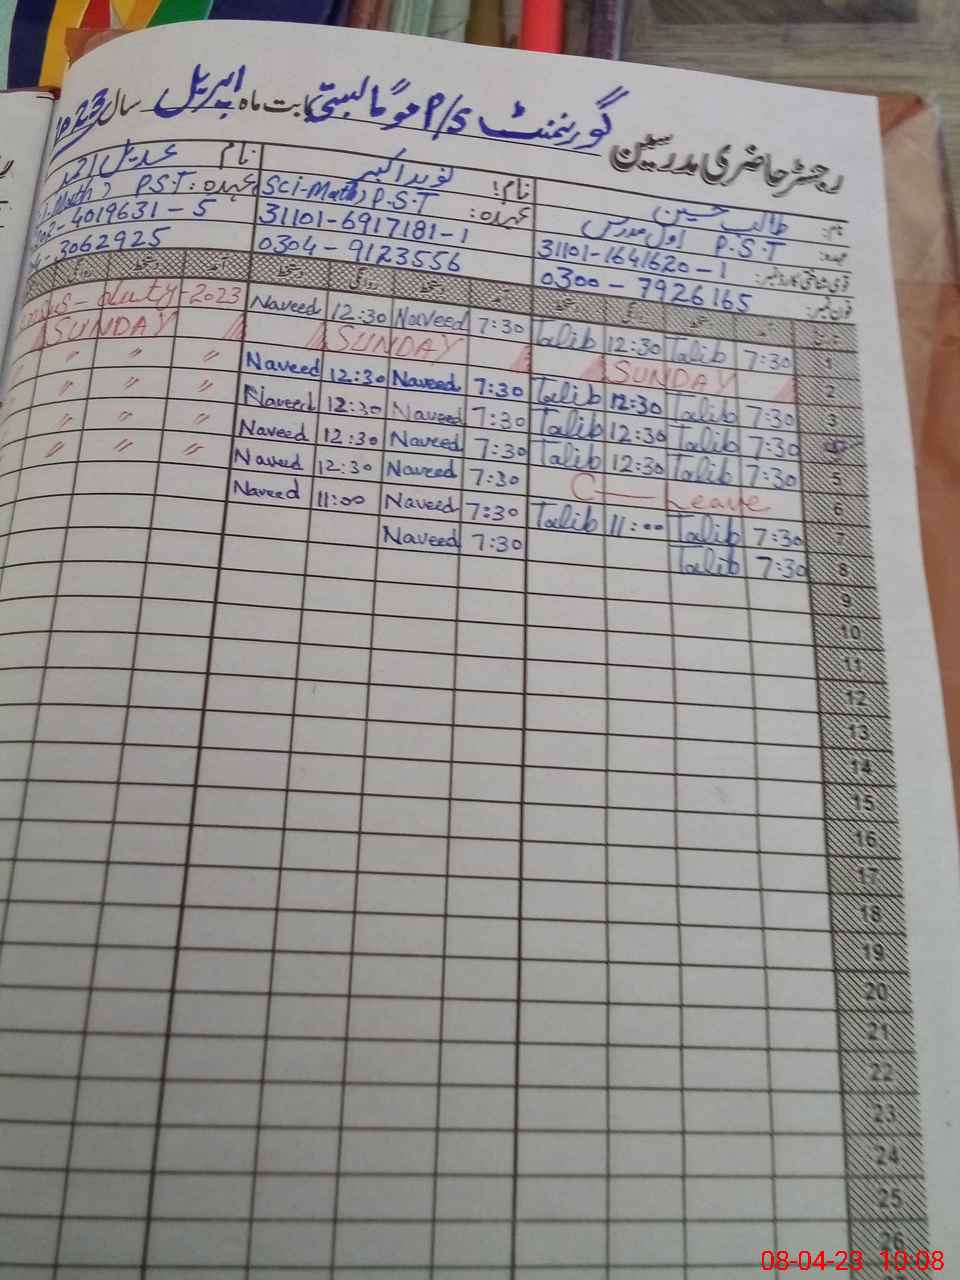 رجسٹر حاضری مدرسین گورنمنٹ P/S موگا بستی بابت ماہ اپریل سال 2023
نام: طالب حسین
عہدہ: اول مدرس P.S.T
قومی شناختی کارڈ نمبر: 31101-1641620-1
فون نمبر: 0300-7926165
نام: نوید اکبر
عہدہ: (Sci-Math) P.S.T
31101-6917181-1
0304-9123556
نام عدیل احمد
عہدہ: P.S.T
4019631-5
3062925
1 7:30 Talib 12:30 Talib 7:30 Naveed 12:30 Naveed duty-2023
2 SUNDAY SUNDAY SUNDAY
3 7:30 Talib 12:30 Talib 7:30 Naveed 12:30 Naveed 〃 〃 〃
7:30 Talib 12:30 Talib 7:30 Naveed 12:30 Naveed 〃 〃 〃
5 7:30 Talib 12:30 Talib 7:30 Naveed 12:30 Naveed 〃 〃 〃
6 C — Leave 7:30 Naveed 12:30 Naveed 〃 〃 〃
7 7:30 Talib 11:00 Talib 7:30 Naveed 11:00 Naveed
8 7:30 Talib 7:30 Naveed
9
10
11
12
13
14
15
16
17
18
19
20
21
22
23
24
25
26
08-04-23 10:08